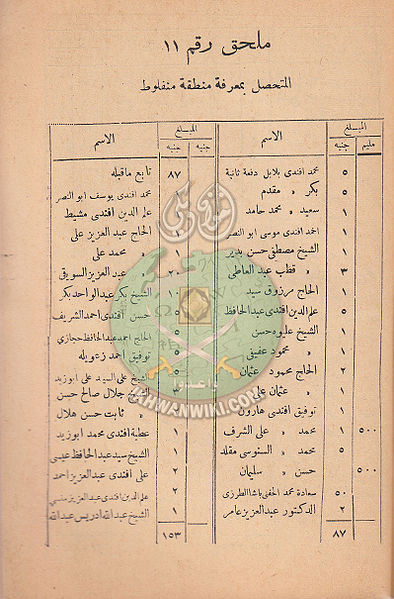 ملحق رقم ١١
المتحصل بمعرفة منطقة منفلوط
المبلغ الاسم
مليم جنيه
٥ محمد افندى بلابل دفعة ثانية
٥ بكر » مقدم
١ سعيد » محمد حامد
١ احمد افندى موسى ابو النصر
١ الشيخ مصطفى حسن بدير
٣ » قطب عبد العاطى
١ الحاج مرزوق سيد
٥ علم الدين افندى عبد الحافظ
١ الشيخ علوه حسن
١ » محمود عفيفى
٢ الحاج محمود عثمان
» عثمان على
١ توفيق افندى هارون
٥٠٠ ١ محمد » على الشرف
٥ محمد » السنوسى مقلد
٥٠٠ حسن » سليمان
٥٠ سعادة محمد الحفنى باشا الطرزى
٢ الدكتور عبد العزيز عامر
٨٧
المبلغ الاسم
جنيه جنيه
٨٧ تابع ماقبله
١ محمد افندى يوسف ابو النصر
علم الدين افندى مشيط
الحاج عبد العزيز على
» محمد على
٢٠ » عبد العزيز السويفى
١٠ الشيخ بكر عبد الواحد بكر
٥ حسن افندى احمد الشريف
٥ الحاج احمد عبد الحافظ حجازى
٥ توفيق احمد زعويله
٥ الشيخ على السيد على ابوزيد
٣ الشيخ جلال صالح حسن
» ثابت حسن هلال
١ عطية افندى محمد ابوزيد
١ الشيخ سيد عبد الحافظ عيسى
٢ على افندى عبد العزيز احمد
٢ علم الدين افندى عبد العزيز منسى
١ الشيخ عبد الله ادريس عبد الله
١٥٣
واعدوا
IKHWANWIKI.COM